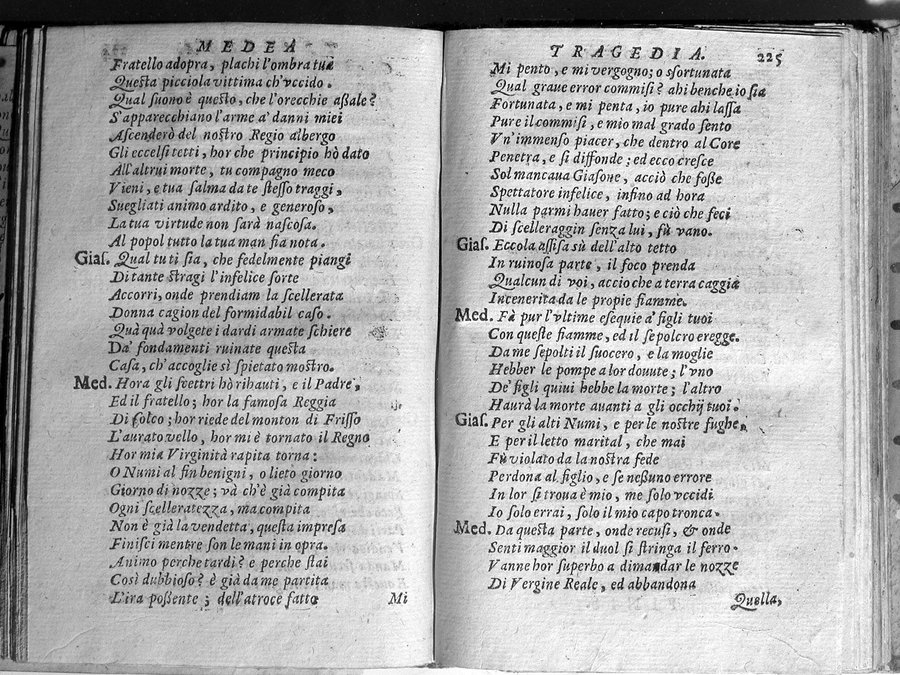 MEDEA
Fratello adopra, plachi l'ombra tua
Questa picciola vittima ch'vccido.
Qual suono è questo, che l'orecchie aßale?
S'apparecchiano l'arme a' danni miei
Ascenderò del nostro Regio albergo
Gli eccelsi tetti, hor che principio hò dato
All'altrui morte, tu compagno meco
Vieni, e tua salma da te stesso traggi,
Suegliati animo ardito, e generoso,
La tua virtude non sarà nascosa.
Al popol tutto la tua man fia nota.
Gias. Qual tu ti sia, che fedelmente piangi
Di tante stragi l'infelice sorte
Accorri, onde prendiam la scellerata
Donna cagion del formidabil caso.
Quà quà volgete i dardi armate schiere
Da' fondamenti ruinate questa
Casa, ch'accoglie sì spietato mostro.
Med. Hora gli scettri hò ribauti, e il Padre,
Ed il fratello; hor la famosa Reggia
Di Colco; hor riede del monton di Frisso
L'aurato vello, hor mi è tornato il Regno
Hor mia Virginità rapita torna:
O Numi al fin benigni, o lieto giorno
Giorno di nozze; và ch'è già compita
Ogni scelleratezza, ma compita
Non è già la vendetta, questa impresa
Finisci mentre son le mani in opra.
Animo perche tardi? e perche stai
Così dubbioso? è già da me partita
L'ira poßente; dell'atroce fatto
Mi
TRAGEDIA. 225
Mi pento, e mi vergogno; o sfortunata
Qual graue error commisi? ahi benche io sia
Fortunata, e mi penta, io pure ahi lassa
Pure il commisi, e mio mal grado sento
Vn'immenso piacer, che dentro al Core
Penetra, e si diffonde; ed ecco cresce
Sol mancaua Giasone, acciò che foße
Spettatore infelice, infino ad hora
Nulla parmi hauer fatto; e ciò che feci
Di scelleraggin senza lui, fù vano.
Gias. Eccola assisa sù dell'alto tetto
In ruinosa parte, il foco prenda
Qualcun di voi, accio che a terra caggia
Incenerita da le propie fiamme.
Med. Fà pur l'vltime esequie a' figli tuoi
Con queste fiamme, ed il sepolcro eregge.
Da me sepolti il suocero, e la moglie
Hebber le pompe a lor douute; l'vno
De' figli quiui hebbe la morte; l'altro
Haurà la morte auanti a gli occhij tuoi.
Gias. Per gli alti Numi, e per le nostre fughe,
E per il letto marital, che mai
Fù violato da la nostra fede
Perdona al figlio, e se neßuno errore
In lor si troua è mio, me solo vccidi
Io solo errai, solo il mio capo tronca.
Med. Da questa parte, onde recusi, & onde
Senti maggior il duol si stringa il ferro.
Vanne hor superbo a dimandar le nozze
Di Vergine Reale, ed abbandona
Quella,